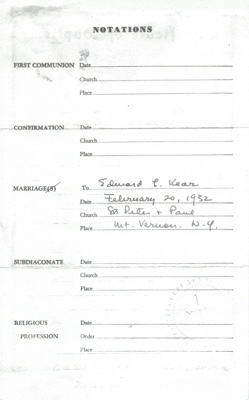 NOTATIONS
FIRST COMMUNION Date
Church
Place
CONFIRMATION Date
Church
Place
MARRIAGE(S) To Edward L. Kear
Date February 20, 1932
Church SS Peter + Paul
Place Mt. Vernon. N.Y.
SUBDIACONATE Date
Church
Place
RELIGIOUS Date
PROFESSION Order
Place